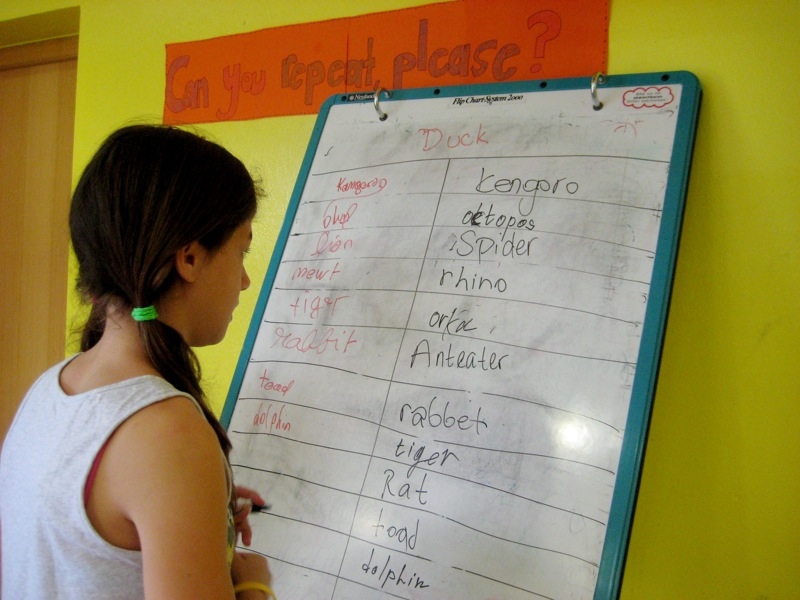 Can you repeat, please?
Flip Chart System 2000
Duck
Kangoroo Kengoro
oktopos
lion Spider
newt rhino
tiger orka
rabbit Anteater
toad rabbet
dolphin tiger
Rat
toad
dolphin